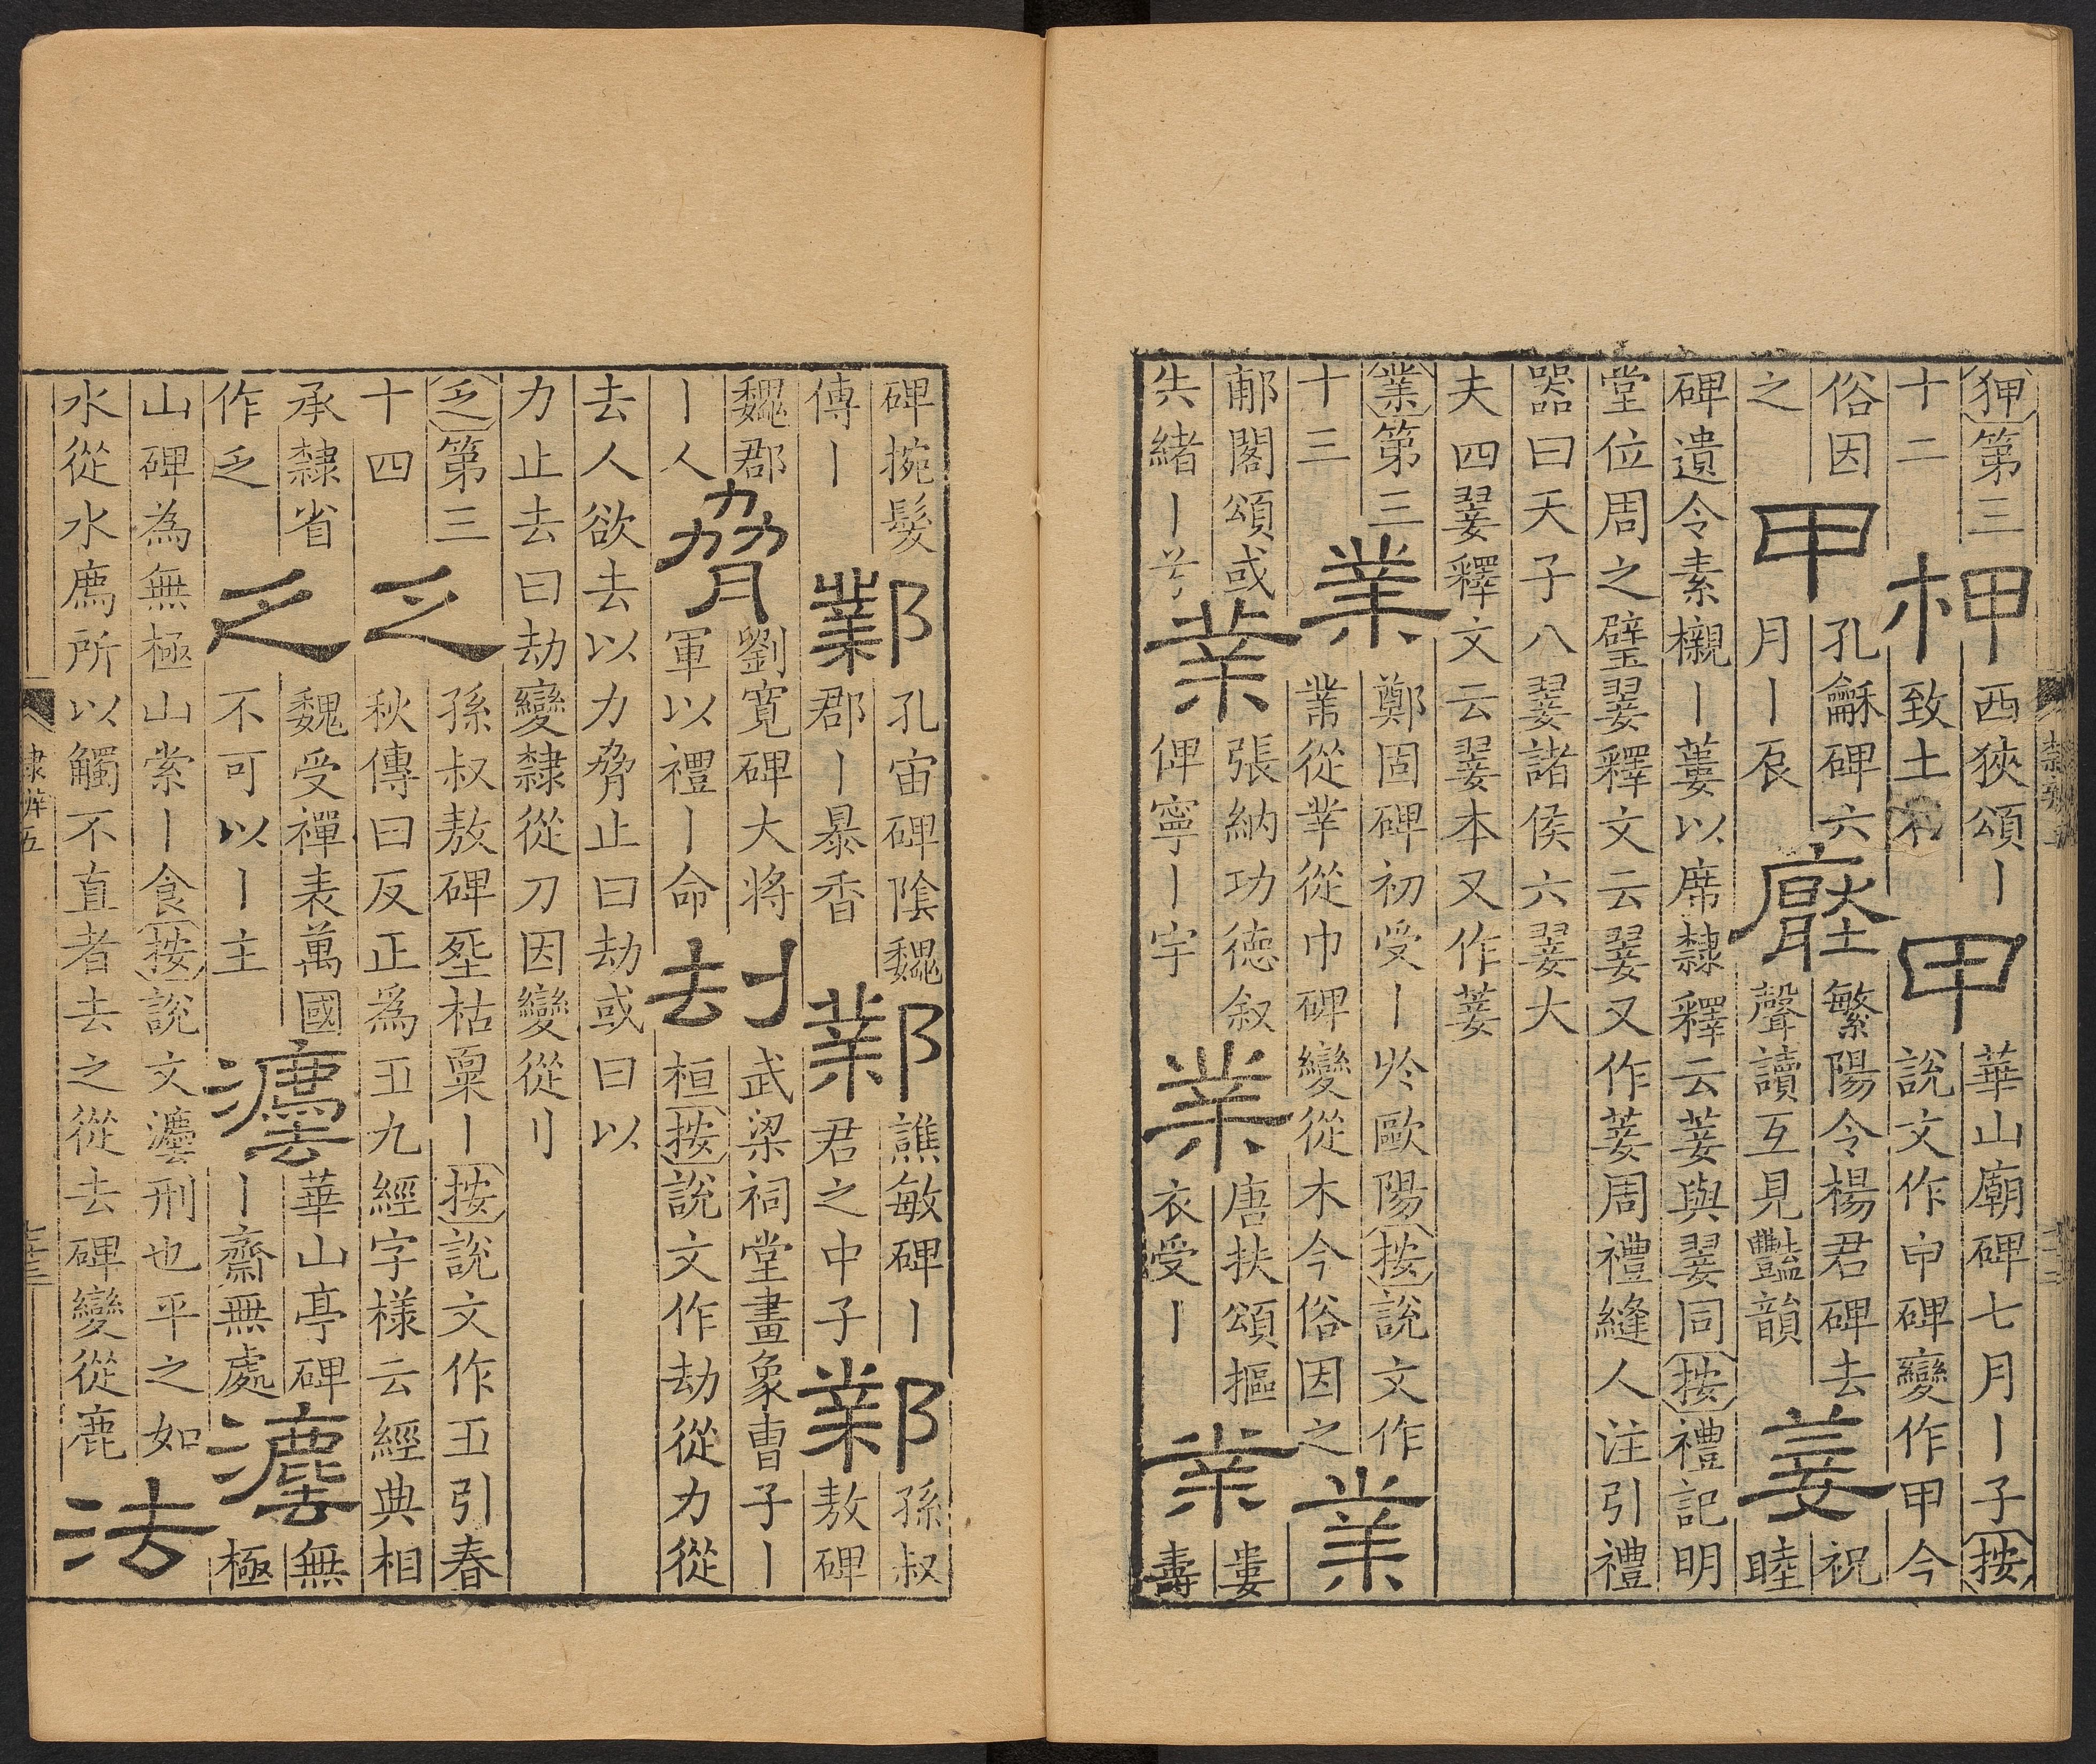 狎第三
十二
柙
西狹頌丨
致土
甲
華山廟碑七月丨子按
說文作𠇚碑變作甲今
俗因
之
甲
孔龢碑六
月丨辰
繁陽令楊君碑去
聲讀互見豔韻
菨
祝
睦
碑遺令素櫬丨蔞以席隸釋云菨與翣同按禮記明
堂位周之璧翣釋文云翣又作菨周禮縫人注引禮
器曰天子八翣諸侯六翣大
夫四翣釋文云翣本又作菨
業第三
十三
業
鄭固碑初受丨於歐陽按說文作
業從丵從巾碑變從木今俗因之
業
郙閣頌或
失緒丨兮
業
張納功德叙
俾寧丨宇
業
唐扶頌摳
衣受丨
業
婁
壽
碑捥髮
傳丨
鄴
孔宙碑陰魏
郡丨暴香
鄴
譙敏碑丨
君之中子
鄴
孫叔
敖碑
魏郡
丨人
脅
劉寬碑大将
軍以禮丨命
刦
武梁祠堂畫象曹子丨
桓按說文作劫從力從
去人欲去以力脅止曰劫或曰以
力止去曰劫變隸從刀因變從刂
乏第三
十四
乏
孫叔敖碑枯稟丨按說文作𠂜引春
秋傳曰反正為𠂜九經字樣云經典相
承隸省
作乏
乏
魏受禪表萬國
不可以丨主
灋
華山亭碑
丨齋無處
灋
無
極
山碑為無極山索丨食按說文灋刑也平之如
水從水廌所以觸不直者去之從去碑變從鹿
法
隸辨五